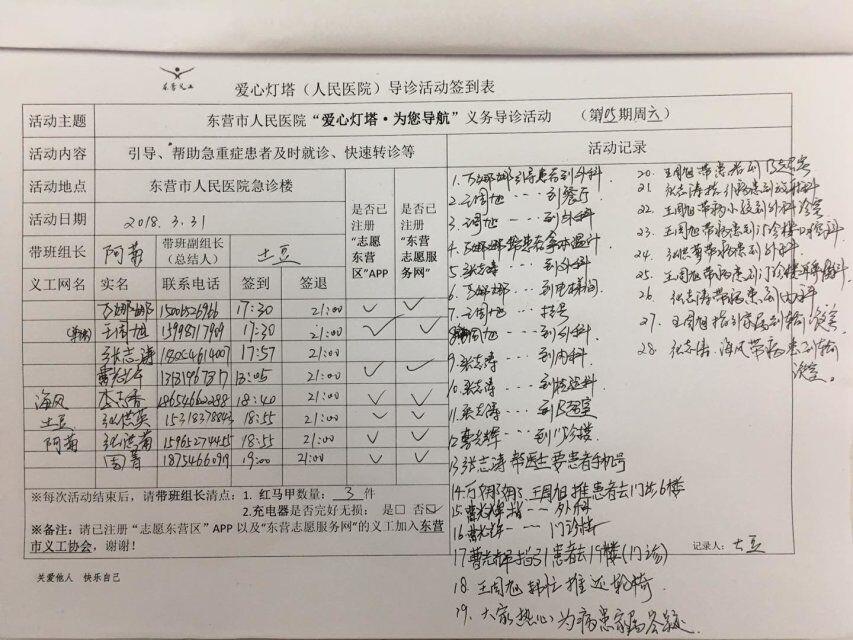 东营义工
爱心灯塔（人民医院）导诊活动签到表
活动主题 东营市人民医院“爱心灯塔·为您导航”义务导诊活动 （第05期周六）
活动内容 引导、帮助急重症患者及时就诊、快速转诊等 活动记录
活动地点 东营市人民医院急诊楼 是否已注册“志愿东营区”APP 是否已注册“东营志愿服务网”
活动日期 2018.3.31
带班组长 阿菊 带班副组长（总结人） 土豆
义工网名 实名 联系电话 签到 签退
万娜娜 17:30 21:00 ✓ ✓
王周旭 15998717909 17:30 21:00 ✓ ✓
张志涛 17:57 21:00
曹光辉 21:00 ✓ ✓
海风 李志香 18654660288 18:40 21:00 ✓ ✓
土豆 张洪英 18:55 21:00 ✓ ✓
阿菊 张洪菊 15965274455 18:55 21:00 ✓ ✓
周菁 19:00 21:00 ✓ ✓
※每次活动结束后，请带班组长清点：1. 红马甲数量： 3 件
2.充电器是否完好无损： 是□ 否☑
※备注：请已注册“志愿东营区”APP 以及“东营志愿服务网”的义工加入东营
市义工协会，谢谢！
关爱他人 快乐自己
1. 万娜娜引导患者到外科
2. 王周旭 ··· 到餐厅
3. 王周旭 ··· 到外科
4. 万娜娜 患者拿体温计
5. 张志涛 ··· 到外科
6. 万娜娜 ··· 到电梯间
7. 王周旭 ··· 挂号
8. 王周旭 ··· 到外科
9. 张志涛 ··· 到内科
10. 张志涛 ··· 到检验科
11. 张志涛 ··· 到B超室
12. 曹光辉 ··· 到门诊楼
13. 张志涛帮医生要患者手机号
14. 万娜娜、王周旭推患者去门诊6楼
15. 曹光辉指 ·· 外科
16. 曹光辉 ·· 门诊楼
17. 曹光辉指引患者去19楼(门诊)
18. 王周旭帮忙推还轮椅
19. 大家热心为病患家属答疑
20. 王周旭带患者到B超室
21. 张志涛指引病患到检验科
22. 王周旭带病小孩到外科诊室
23. 王周旭带病患到门诊楼口腔科
24. 张洪菊带病患到外科
25. 王周旭带病患到门诊楼耳鼻喉科
26. 张志涛带病患到内科
27. 王周旭指引家属到输液室
28. 张志涛、海风带病患到输
液室。
记录人： 土豆